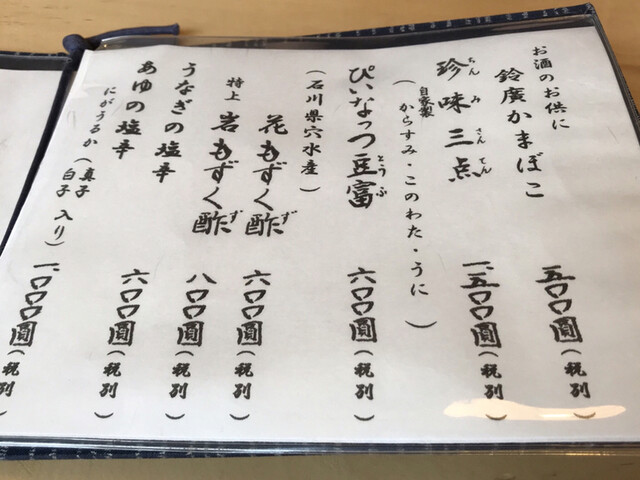 お酒のお供に
鈴廣かまぼこ 五〇〇圓(税別)
珍味三点 一、五〇〇圓(税別)
ちんみさんてん
(自家製からすみ・このわた・うに)
ぴいなっつ豆富 六〇〇圓(税別)
とうふ
(石川県穴水産)
花もずく酢 六〇〇圓(税別)
ず
特上 岩もずく酢 八〇〇圓(税別)
ず
うなぎの塩辛 六〇〇圓(税別)
あゆの塩辛
にがうるか(真子 白子 入り) 一、〇〇〇圓(税別)